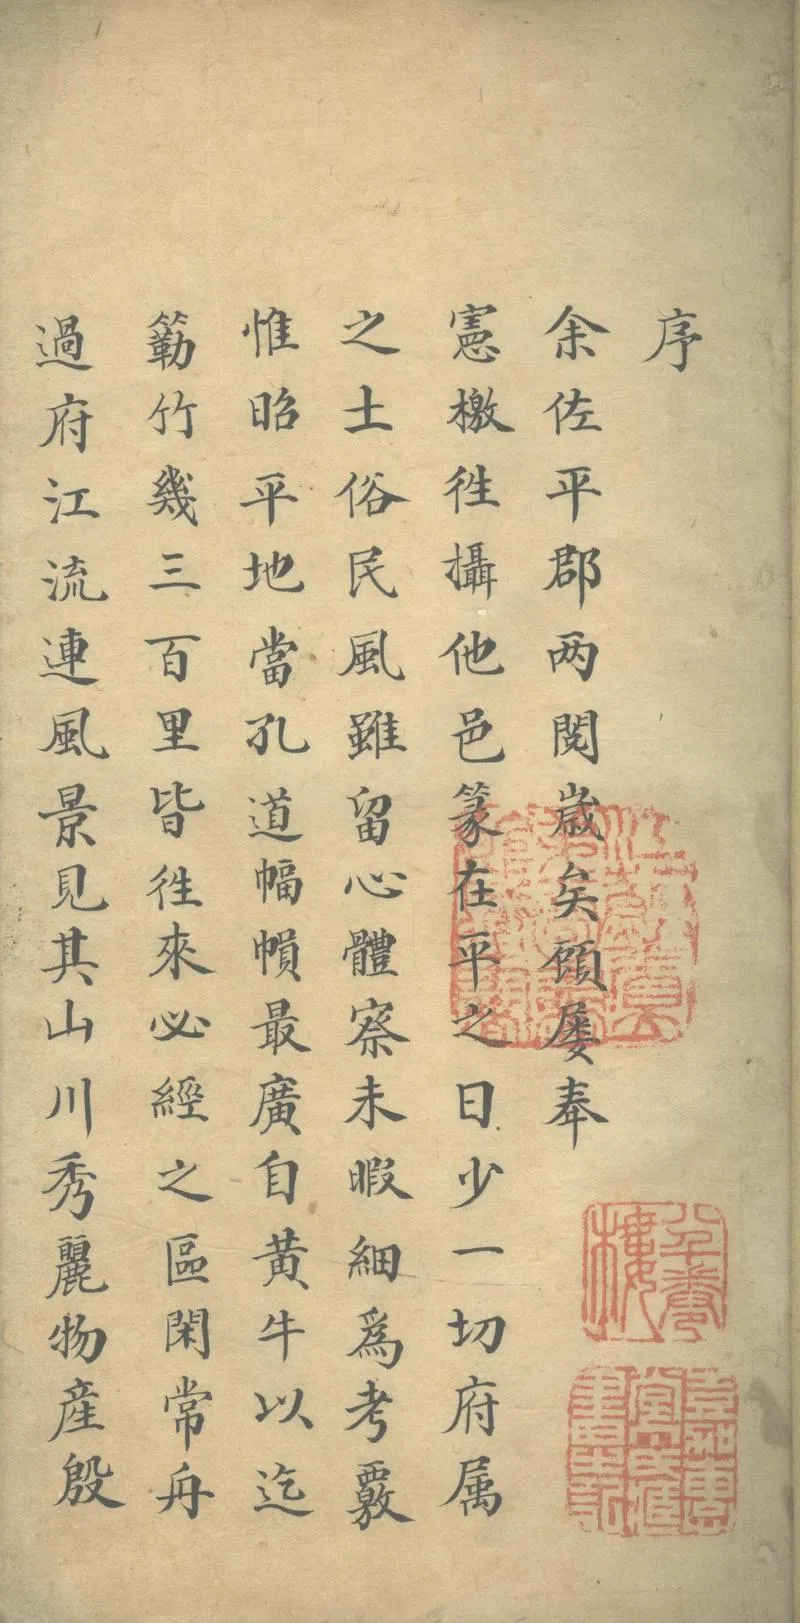 序
余佐平郡两閱歲矣顧屡奉
憲檄徃攝他邑篆在平之日少一切府属
之土俗民風雖留心體察未暇細爲考覈
惟昭平地當孔道幅幀最廣自黃牛以迄
簕竹幾三百里皆徃來必經之區閑常舟
過府江流連風景見其山川秀麗物産殷